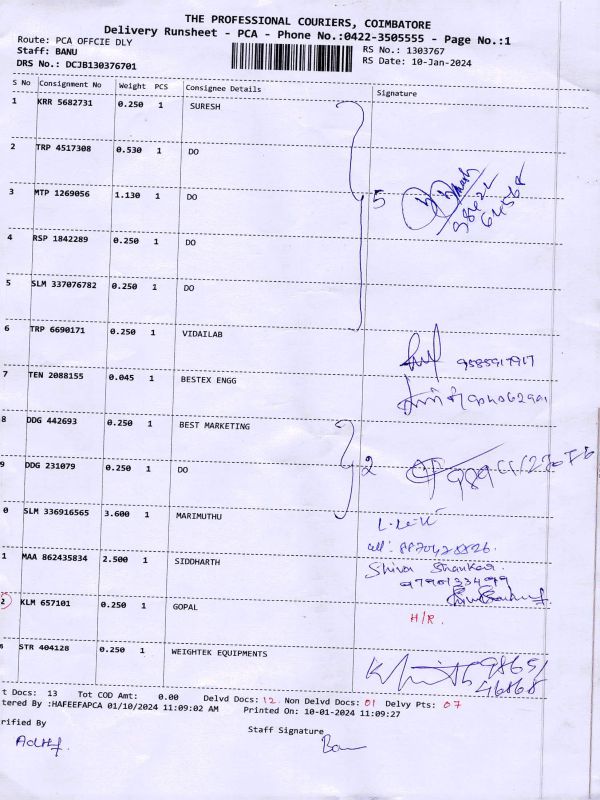 THE PROFESSIONAL COURIERS, COIMBATORE
Delivery Runsheet - PCA - Phone No.:0422-3505555 - Page No.:1
Route: PCA OFFCIE DLY
RS No.: 1303767
Staff: BANU
RS Date: 10-Jan-2024
DRS No.: DCJB130376701
S No Consignment No Weight PCS Consignee Details Signature
1 KRR 5682731 0.250 1 SURESH
2 TRP 4517308 0.530 1 DO
3 MTP 1269056 1.130 1 DO 5
4 RSP 1842289 0.250 1 DO
5 SLM 337076782 0.250 1 DO
6 TRP 6690171 0.250 1 VIDAILAB 9585917917
7 TEN 2088155 0.045 1 BESTEX ENGG
8 DDG 442693 0.250 1 BEST MARKETING
9 DDG 231079 0.250 1 DO 2
0 SLM 336916565 3.600 1 MARIMUTHU
1 MAA 862435834 2.500 1 SIDDHARTH Shiva Shankar
2 KLM 657101 0.250 1 GOPAL H/R.
STR 404128 0.250 1 WEIGHTEK EQUIPMENTS 9865/
46868
t Docs: 13 Tot COD Amt: 0.00 Delvd Docs: 12. Non Delvd Docs: 01 Delvy Pts: 07
tered By :HAFEEFAPCA 01/10/2024 11:09:02 AM Printed On: 10-01-2024 11:09:27
rified By Staff Signature